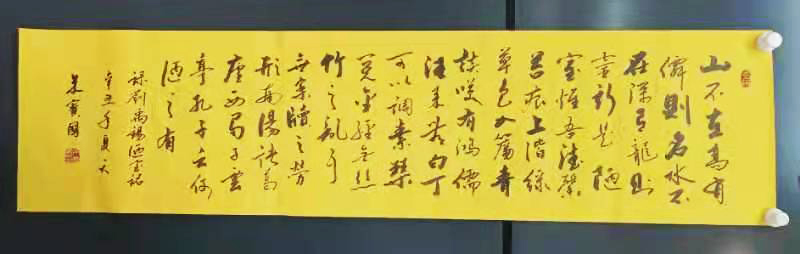 山不在高有
僊則名水不
在深有龍則
靈斯是陋
室惟吾德馨
苔痕上階綠
草色入簾青
談笑有鴻儒
往来無白丁
可以調素琴
閱金經無絲
竹之亂耳
無案牘之勞
形南陽諸葛
廬西蜀子雲
亭孔子云何
陋之有
錄劉禹錫陋室銘
辛丑年夏天
朱寶國